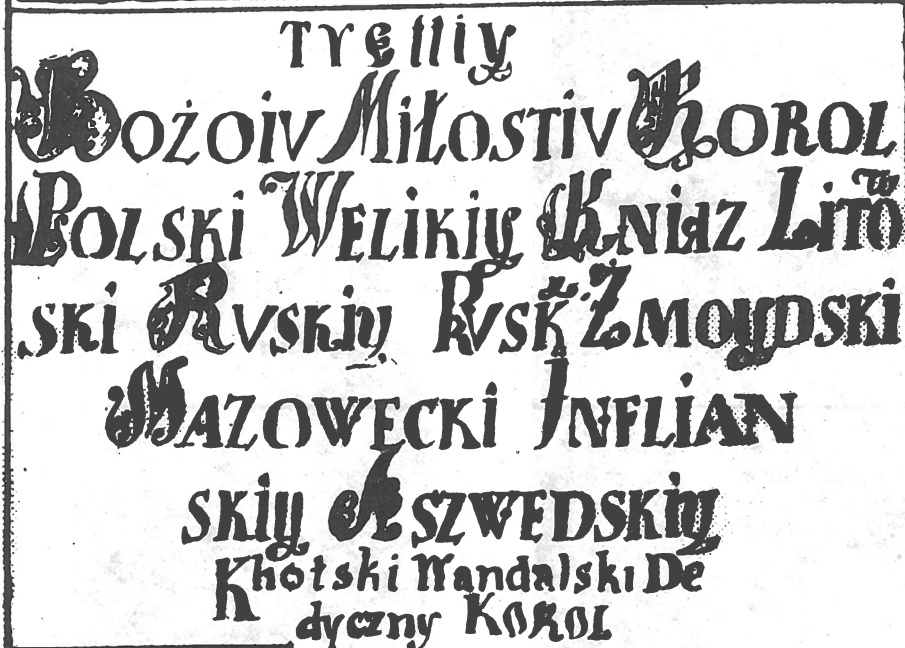 Tretiy
Bożoiv Miłostiv Korol
Polski Welikiy Kniaz Lito w
ski Rvskiy Prvsk Żmoydski
Mazowecki Inflian
skiy A Szwedskiy
Khotski Wandalski De
dyczny Korol